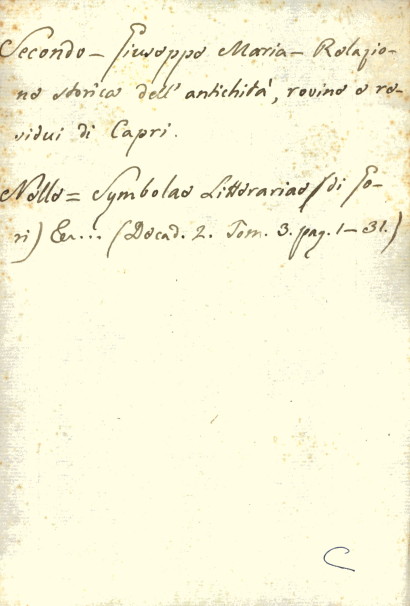 Secondo - Giuseppe Maria - Relazio-
ne storica dell' antichità, rovine e re-
sidui di Capri.
Nelle = Symbolae Litterariae (di Go-
ri) &c... (Decad. 2. Tom. 3. pag. 1-31.)
C